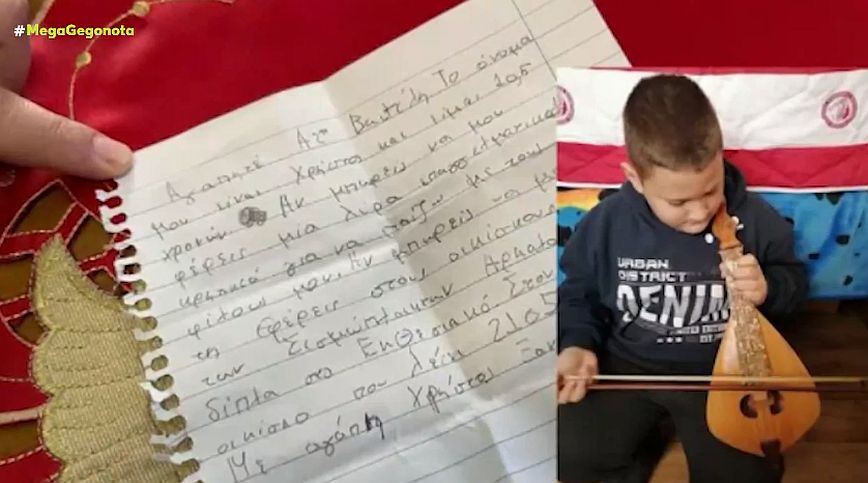 #MegaGegonota
Αγαπητέ Αϊ Βασίλη Το όνομα
μου είναι Χρήστος και είμαι 10,5
χρονών Αν μπορείς να μου
φέρεις μία λύρα επαγγελματικ
κρητικιά για να παίζω με τους
φίλους μου. Αν μπορείς να
τη φέρεις στους οικίσκου
των Σεισμόπληκτων Αρκαλο
δίπλα στο Εκθεσιακό. Στον
οικίσκο που λέει 2105
Με αγάπη Χρήστος Ξαν
URBAN
DISTRICT
DENIM